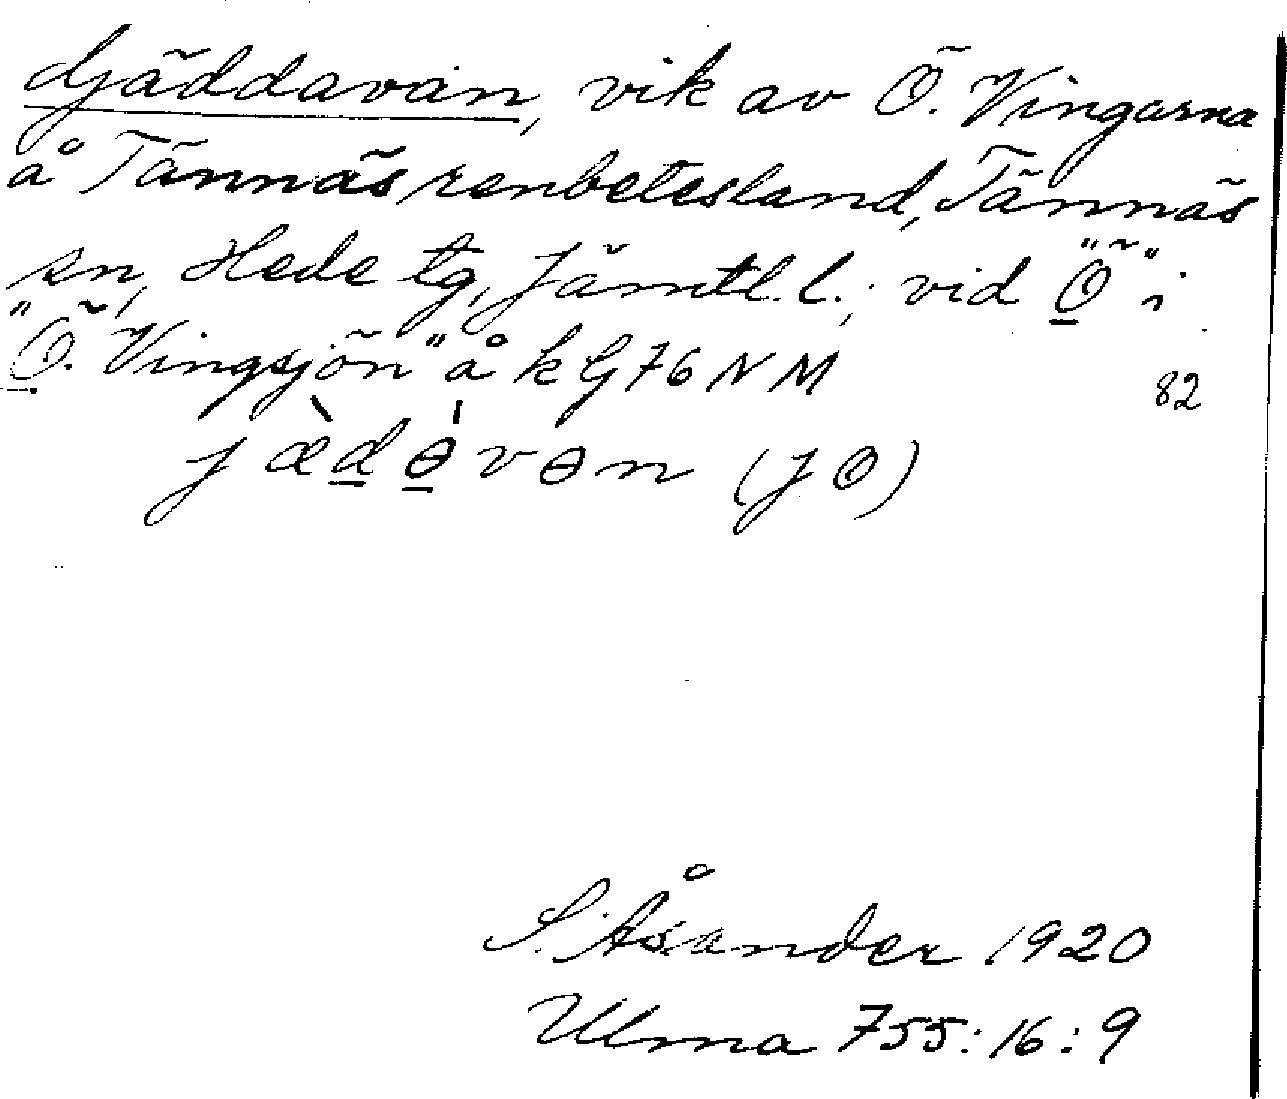 Gäddavan, vik av Ö. Vingarna
å Tännäs renbetesland, Tännäs
sn, Hede tg, Jämtl. l.; vid "Ö" i
"Ö. Vingsjön" å k G 76 N M
82
jæ̀də̀vən (JO)
S. Åsander 1920
Ulma 755:16:9